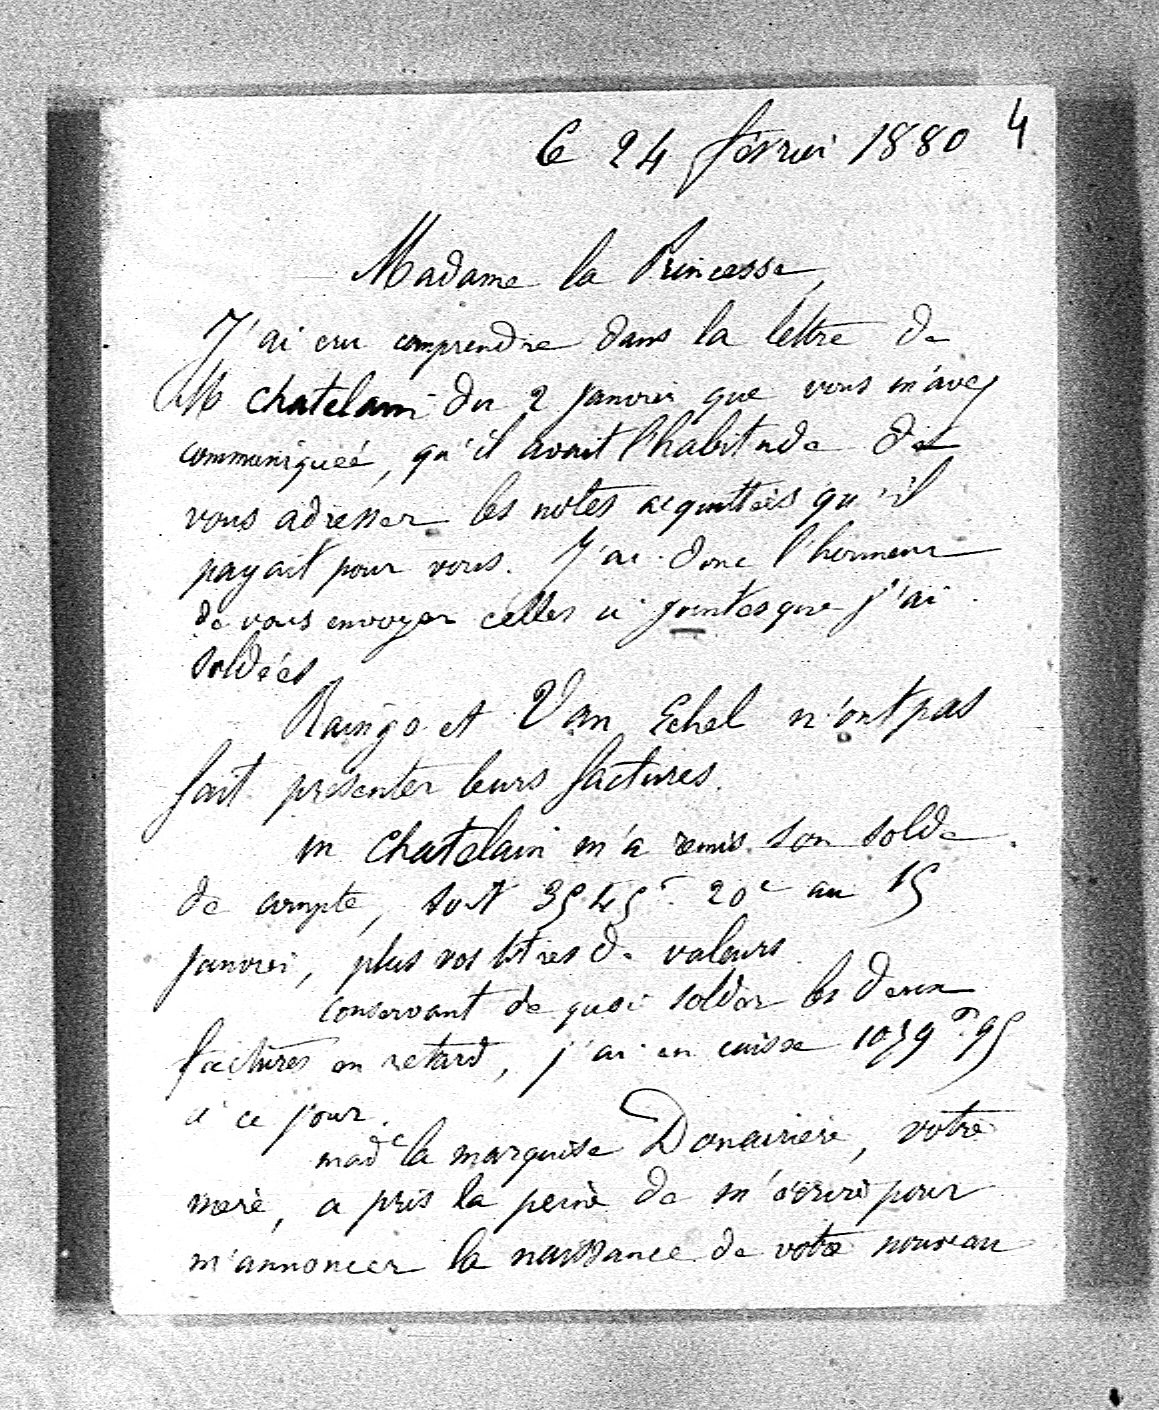 4
Ce 24 février 1880
Madame la Princesse,
J'ai cru comprendre dans la lettre de
M chatelain du 2 janvier que vous m'avez
communiquée, qu'il avait l'habitude de
vous adresser les notes acquittées qu'il
payait pour vous. J'ai donc l'honneur
de vous envoyer celles ci jointes que j'ai
soldées
Raingo et Van Echel n'ont pas
fait présenter leurs factures.
M chatelain m'a remis son solde
de compte, soit 3545f 20c au 15
janvier, plus vos titres de valeurs.
conservant de quoi solder les deux
factures en retard, j'ai en caisse
à ce jour.
made la marquise Douairière, votre
mère, a pris la peine de m'écrire pour
m'annoncer la naissance de votre nouveau